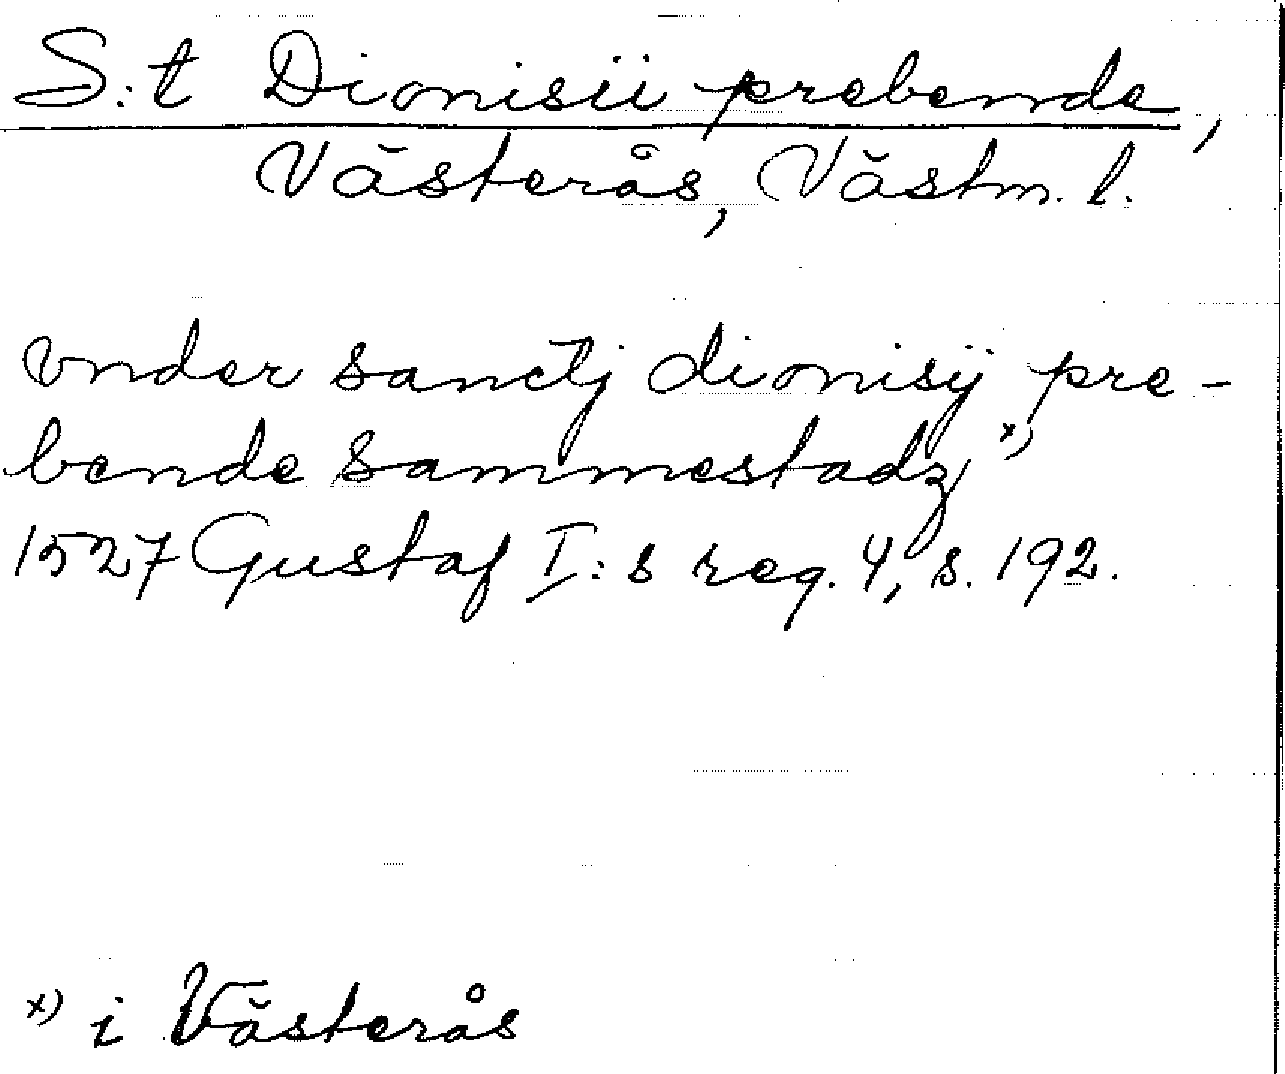 S:t Dionisii prebende,
Västerås, Västm. l.
vnder sanctj dionisij pre-
bende sammestadz x)
1527 Gustaf I:s reg. 4, s. 192.
x) i Västerås